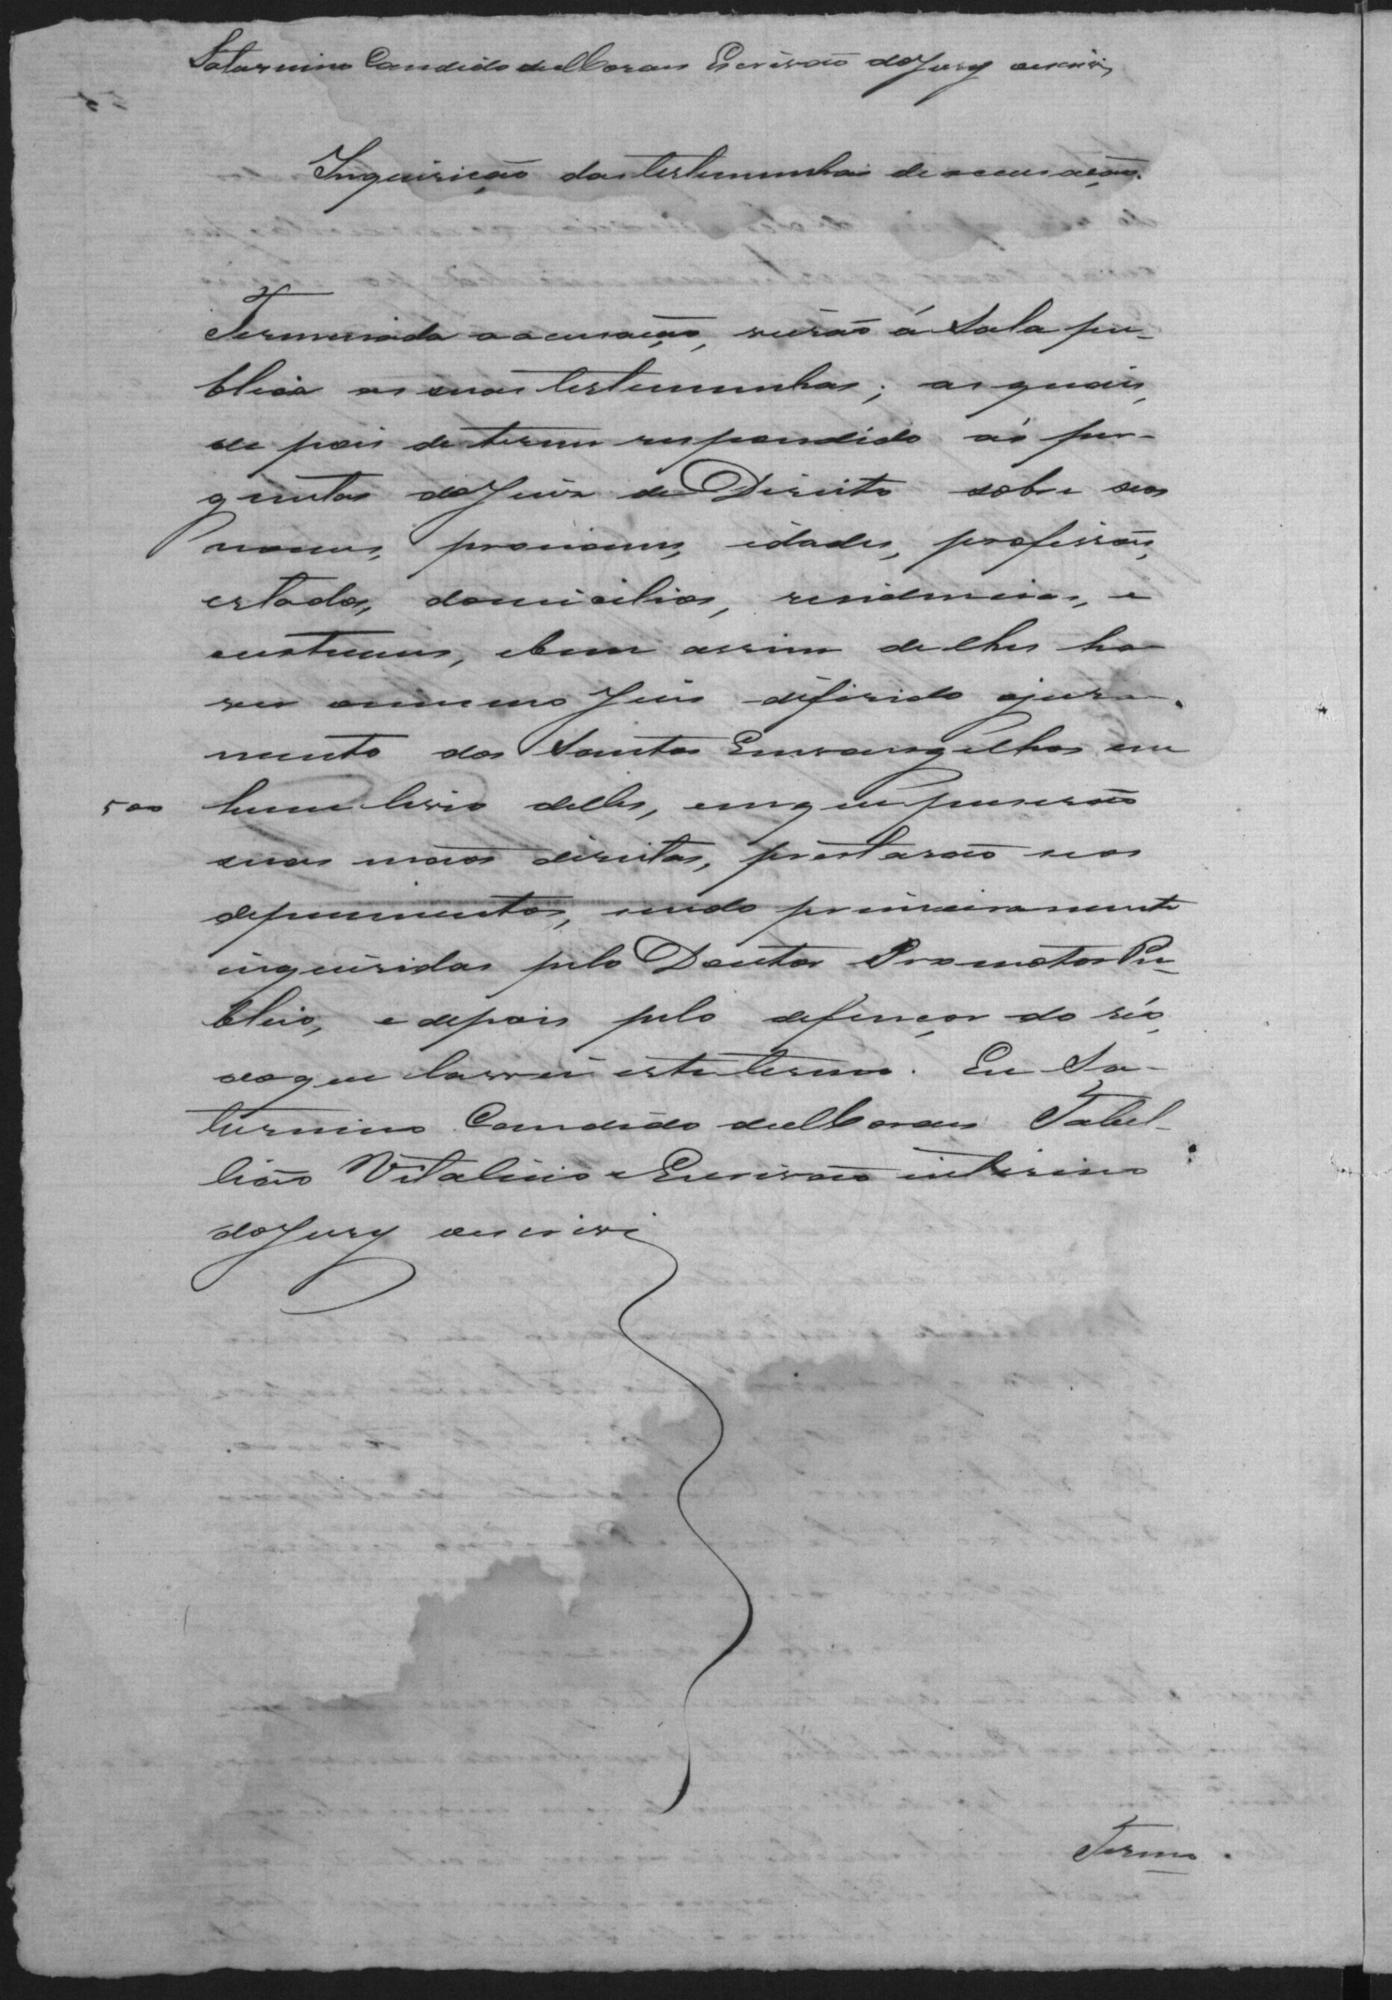 Saturnino Candido de Moraes Escrivão do Jury oescrivi
Inquirição das testemunhas de accusação.
Terminada a accusação, viérão á Sala pu-
blica as suas testemunhas; as quais,
de pois de terem respondido ás per-
guntas do Juiz de Direito sobre seos
nomes, pronomes, idades, profissões,
estados, domicilios, residencias, e
custumes, e bem assim de lhes ha-
ver omesmo Juiz diferido ojura-
mento dos Santos Envangelhos em
500 hum livro delles, emque puserão
suas mãos direitas, prestarão seos
depuimentos, sendo primeiramente
inquiridas pelo Doutor Promotor Pu-
blico, e depois pelo defençor do réo,
do que lavrei este termo. Eu Sa-
turnino Candido de Moraes Tabel-
lião Vitalicio e Escrivão interino
do Jury oescrivi
Termo.